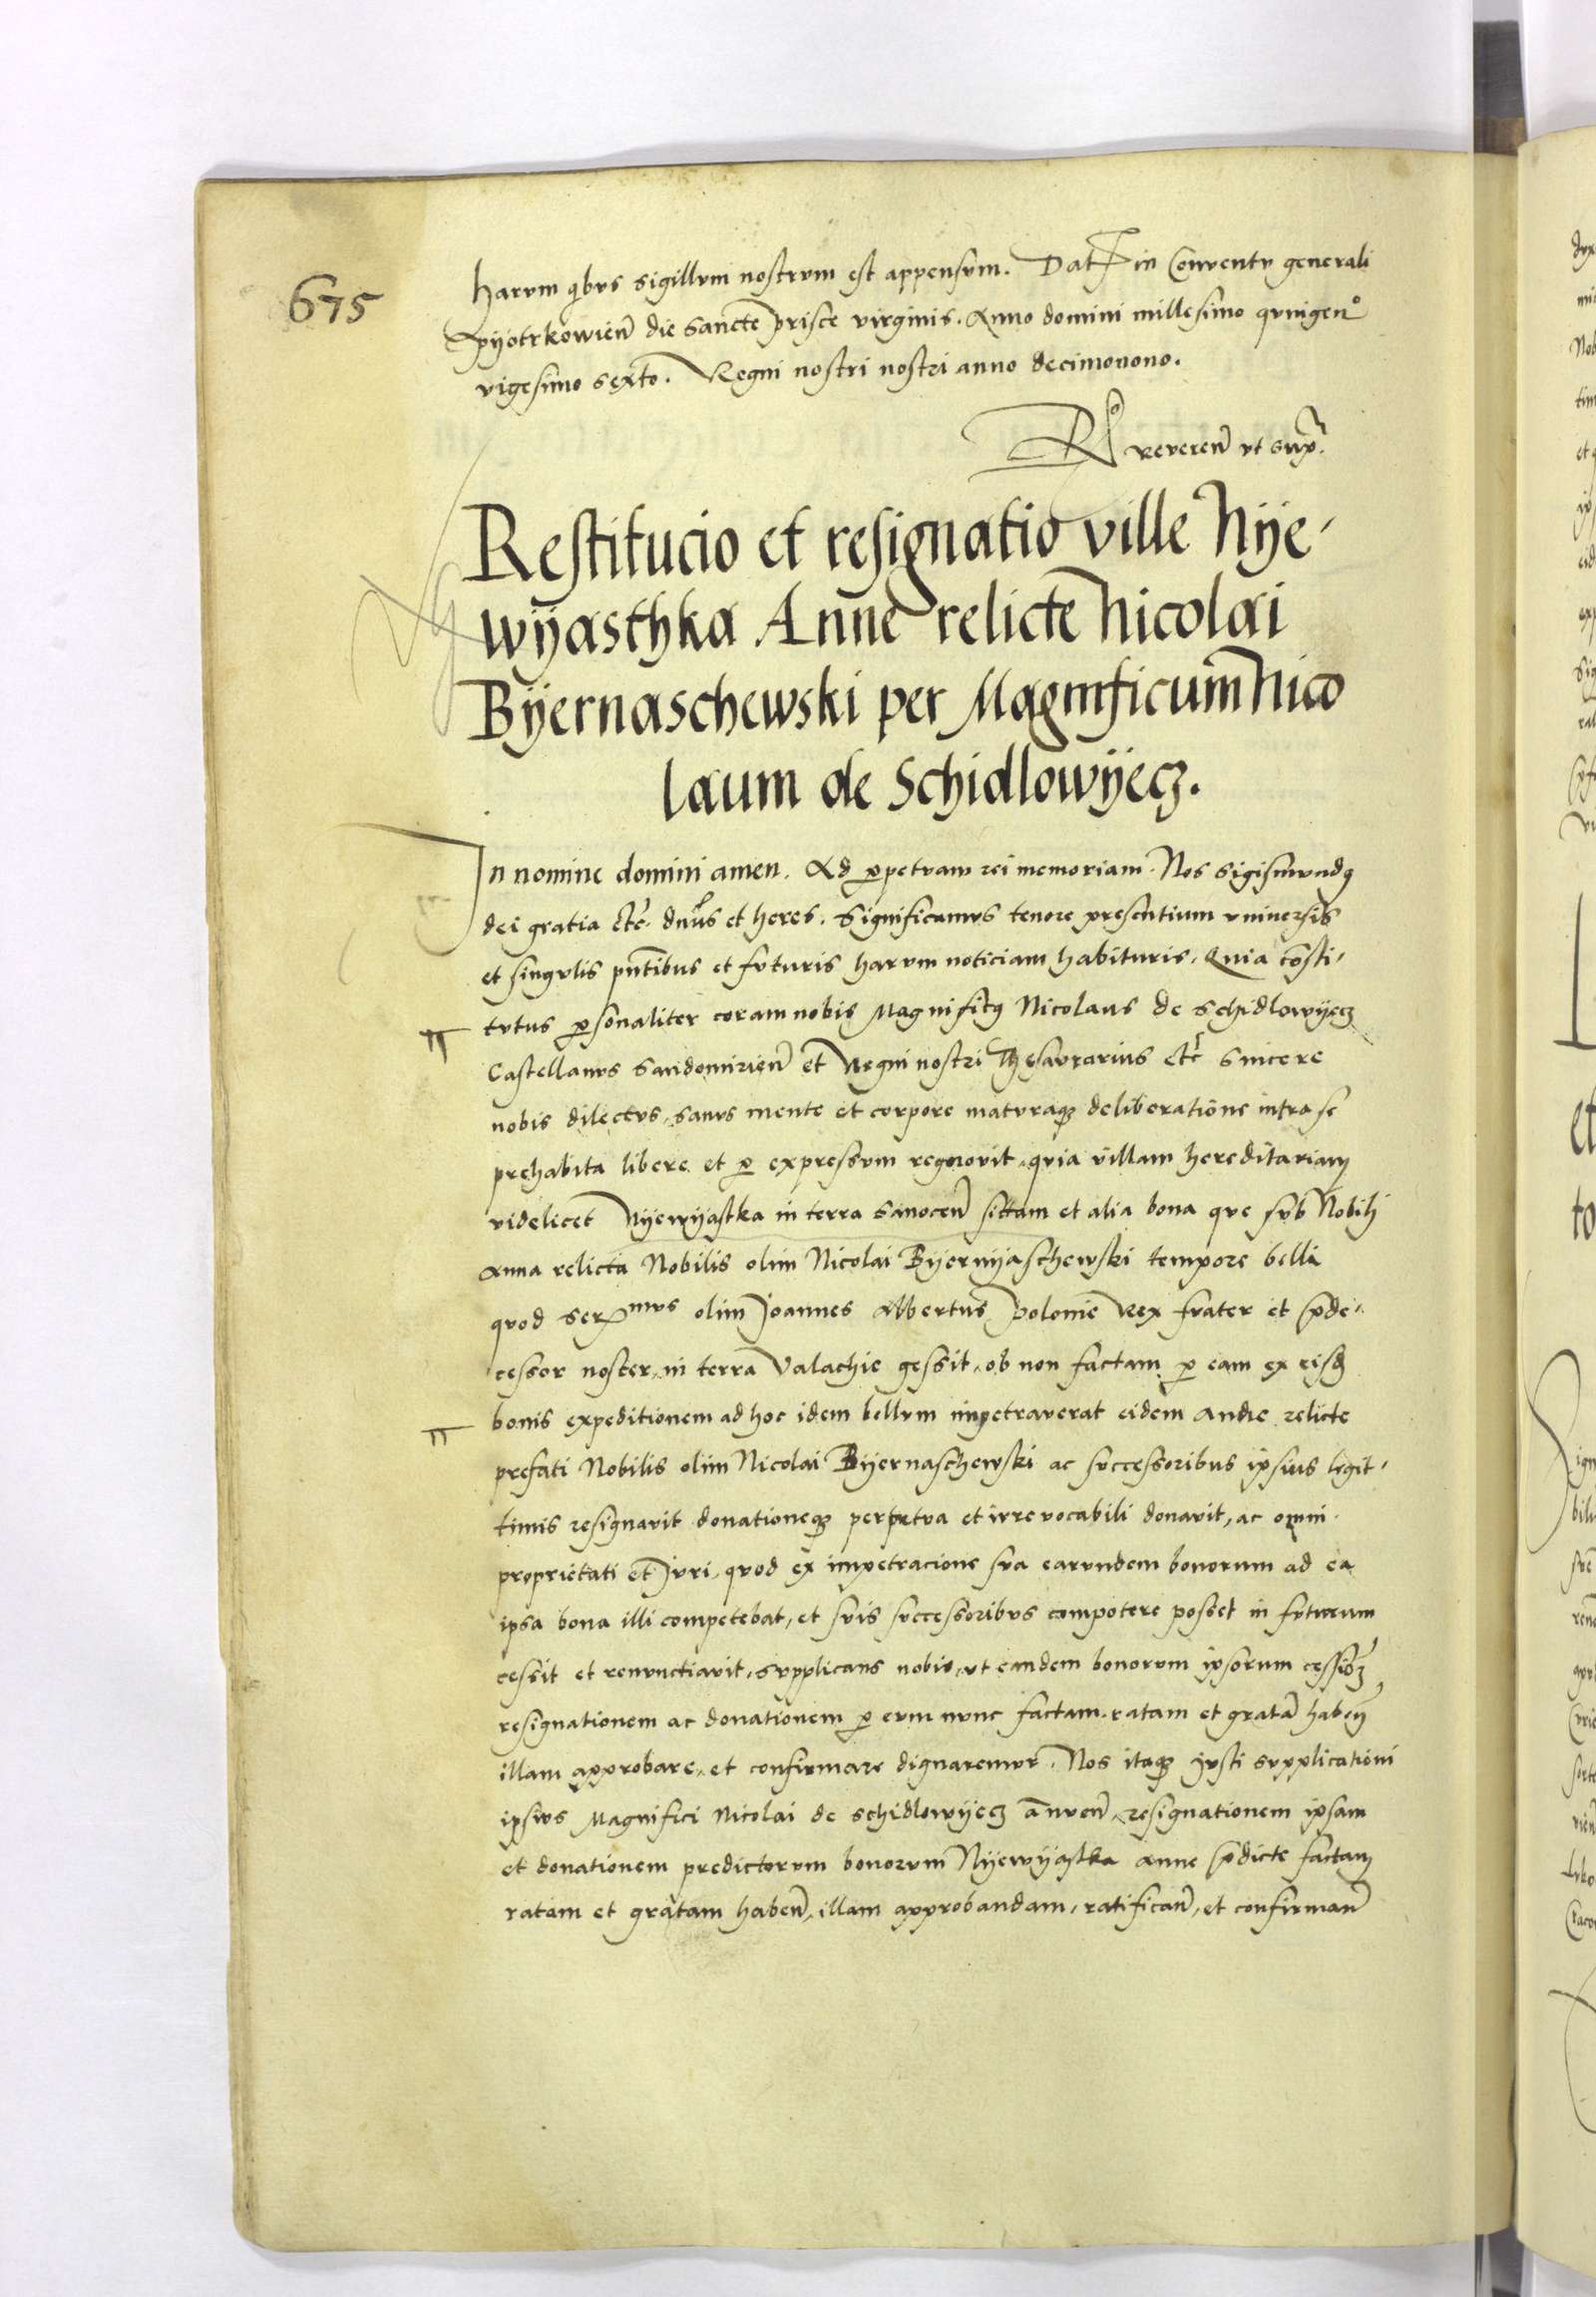 675
harum qibus sigillum nostrum est appensum. Dat in Conventu generali
Pyotrkowien̄ die sancte prisce virginis. Anno domini millesimo quingenᵒ
vigesimo sexto. Regni nostri nostri anno decimonono.
Rᵒ reveren̄ ut sup̄.
Restitucio et resignatio ville Nye-
wyasthka Anne relicte Nicolai
Byernaschewski per Magnificum Nico
laum de Schidlowyecz.
In nomine domini amen. Ad ꝑpetuam rei memoriam. Nos Sigismundꝯ
dei gratia etc̄. dn̄us et heres. Significamus tenore presentium universis
et singulis pn̄tibus et futuris harum noticiam habituris. Quia consti-
tutus ꝑsonaliter coram nobis Magnificꝯ Nicolaus de Schidlowyecz
Castellanus Sandomirien̄ et Regni nostri Thesaurarius etc̄ sincere
nobis dilectus, sanus mente et corpore maturaqꝫ deliberatione intra se
prehabita libere et ꝑ expressum regnovit, quia villam hereditariam
videlicet Nyewyastka in terra Sanocen̄ sittam et alia bona que sub Nobili
Anna relicta Nobilis olim Nicolai Byernyaschewski tempore belli
quod Serᵐᵘˢ olim Joannes Albertus Polonie Rex frater et p̄de-
cessor noster, in terra Valachie gessit, ob non factam ꝑ eam ex eisdꝫ
bonis expeditionem ad hoc idem bellum impetraverat eidem Anne relicte
prefati Nobilis olim Nicolai Byernaschewski ac successoribus ipsius legit-
timis resignavit donationeqꝫ perpetua et irrevocabili donavit, ac omni
proprietati et Juri, quod ex impetracione sua earundem bonorum ad ea
ipsa bona illi competebat, et suis successoribus compotere posset in futurum
cessit et renunctiavit, supplicans nobis, ut eandem bonorum ipsorum cessioꝫ
resignationem ac donationem ꝑ eum nunc factam, ratam et gratā haben̄
illam approbare, et confirmare dignaremur. Nos itaqꝫ justi supplicationi
ipsius Magnifici Nicolai de Schidlowyecz ānuen̄, resignationem ipsam
et donationem predictorum bonorum Nyewyastka Anne p̄dicte factam
ratam et gratam haben̄, illam approbandam, ratifican̄, et confirman̄